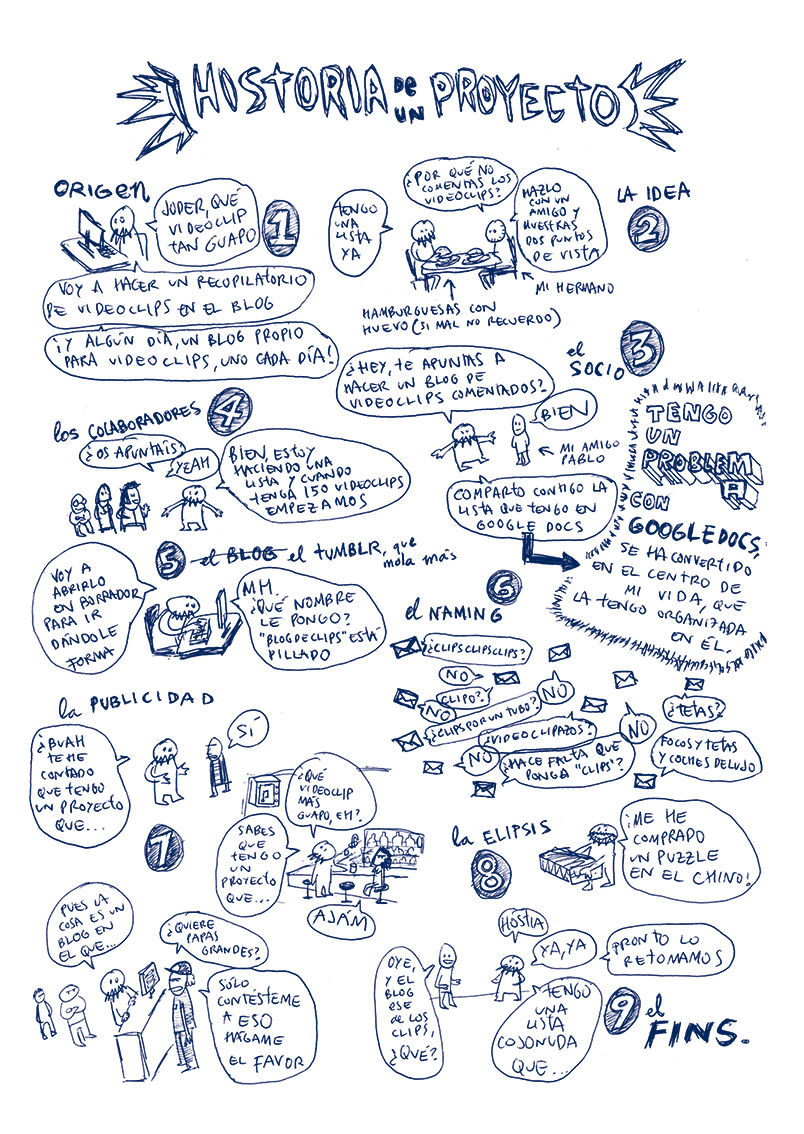 ¡HISTORIA DE UN PROYECTO!
ORIGEN
1
JODER, QUÉ
VIDEOCLIP
TAN GUAPO
VOY A HACER UN RECOPILATORIO
DE VIDEOCLIPS EN EL BLOG
¡Y ALGÚN DÍA, UN BLOG PROPIO
PARA VIDEOCLIPS, UNO CADA DÍA!
LA IDEA
2
¿POR QUÉ NO
COMENTAS LOS
VIDEOCLIPS?
TENGO
UNA
LISTA
YA
HAZLO
CON UN
AMIGO Y
MUESTRAS
DOS PUNTOS
DE VISTA
MI HERMANO
HAMBURGUESAS CON
HUEVO (SI MAL NO RECUERDO)
el
SOCIO
3
¿HEY, TE APUNTAS A
HACER UN BLOG DE
VIDEOCLIPS COMENTADOS?
BIEN
MI AMIGO
PABLO
COMPARTO CONTIGO LA
LISTA QUE TENGO EN
GOOGLE DOCS
TENGO
UN
PROBLEM
A
CON
GOOGLE DOCS,
SE HA CONVERTIDO
EN EL CENTRO DE
MI VIDA, QUE
LA TENGO ORGANIZADA
EN ÉL.
los COLABORADORES
4
¿OS APUNTAIS?
¡YEAH
BIEN, ESTOY
HACIENDO UNA
LISTA Y CUANDO
TENGA 150 VIDEOCLIPS
EMPEZAMOS
5
el BLOG el TUMBLR, que
mola más
VOY A
ABRIRLO
EN BORRADOR
PARA IR
DÁNDOLE
FORMA
MH.
¿QUÉ NOMBRE
LE PONGO?
"BLOGDECLIPS" ESTÁ
PILLADO
6
el NAMING
¿CLIPSCLIPSCLIPS?
NO
CLIPO?
NO
NO
¿CLIPS POR UN TUBO?
¿VIDEOCLIPAZOS?
NO
¿TETAS?
NO
¿HACE FALTA QUE
PONGA "CLIPS"?
FOCOS Y TETAS
Y COCHES DE LUJO
la PUBLICIDAD
7
¿BUAH
TE HE
CONTADO
QUE TENGO
UN PROYECTO
QUE...
SÍ
¿QUÉ
VIDEOCLIP
MÁS
GUAPO, EH?
SABES
QUE
TENGO
UN
PROYECTO
QUE...
AJÁM
PUES LA
COSA ES UN
BLOG EN
EL QUE...
¿QUIERE
PAPAS
GRANDES?
SÓLO
CONTÉSTEME
A ESO
HÁGAME
EL FAVOR
la ELIPSIS
8
¡ME HE
COMPRADO
UN PUZZLE
EN EL CHINO!
9
el
FINS.
OYE,
Y EL
BLOG
ESE
de LOS
CLIPS,
¿QUÉ?
HÓSTIA
YA, YA
PRONTO LO
RETOMAMOS
TENGO
UNA
LISTA
COJONUDA
QUE...